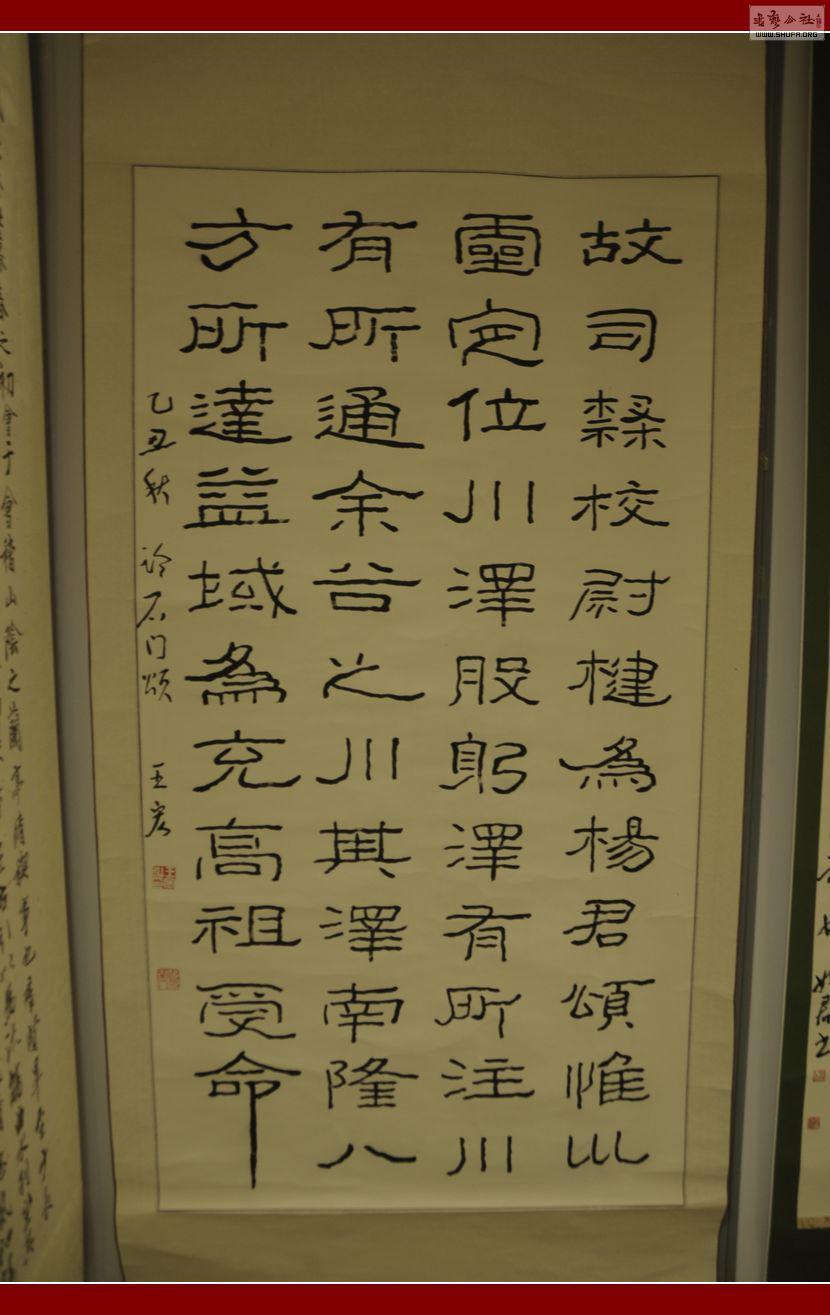 書藝公社
WWW.SHUFA.ORG
故司隸校尉楗為楊君頌惟巛
靈定位川澤股躬澤有所注川
有所通余谷之川其澤南隆八
方所達益域為充高祖受命
乙丑秋 臨石门頌 王宏
初會于會稽山陰之蘭亭脩禊事也